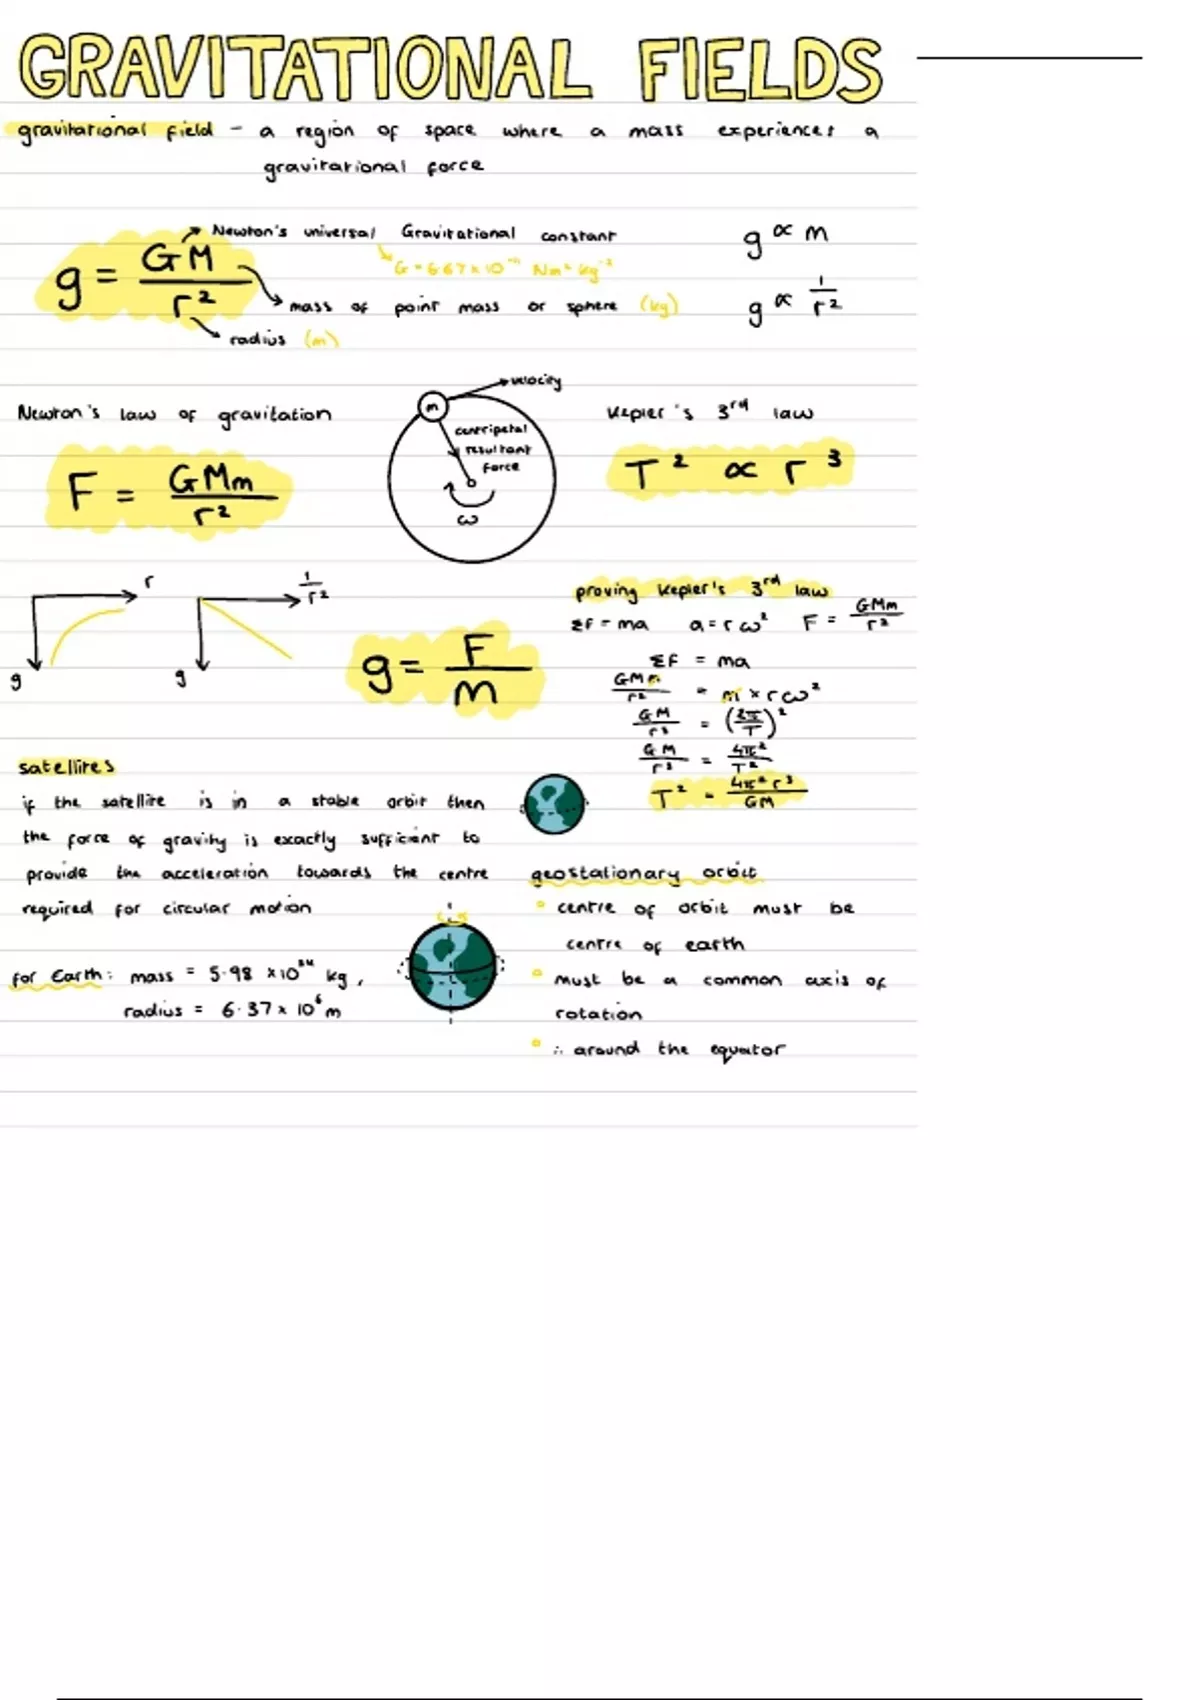 GRAVITATIONAL FIELDS
gravitational field - a region of space where a mass experiences a
gravitational force
g = GM/r²
Newton's universal Gravitational constant
G = 6.67 x 10⁻¹¹ Nm² kg⁻²
mass of point mass or sphere (kg)
radius (m)
g ∝ m
g ∝ 1/r²
Newton's law of gravitation
F = GMm/r²
m
velocity
centripetal
resultant
force
ω
Kepler's 3rd law
T² ∝ r³
r
g
1/r²
g
g = F/m
proving Kepler's 3rd law
ΣF = ma a = rω² F = GMm/r²
ΣF = ma
GMm/r² = m × rω²
GM/r³ = (2π/T)²
GM/r³ = 4π²/T²
T² = 4π²r³/GM
satellites
if the satellite is in a stable orbit then
the force of gravity is exactly sufficient to
provide the acceleration towards the centre
required for circular motion
for Earth: mass = 5.98 x10²⁴ kg,
radius = 6.37 x 10⁶ m
geostationary orbit
centre of orbit must be
centre of earth
must be a common axis of
rotation
∴ around the equator